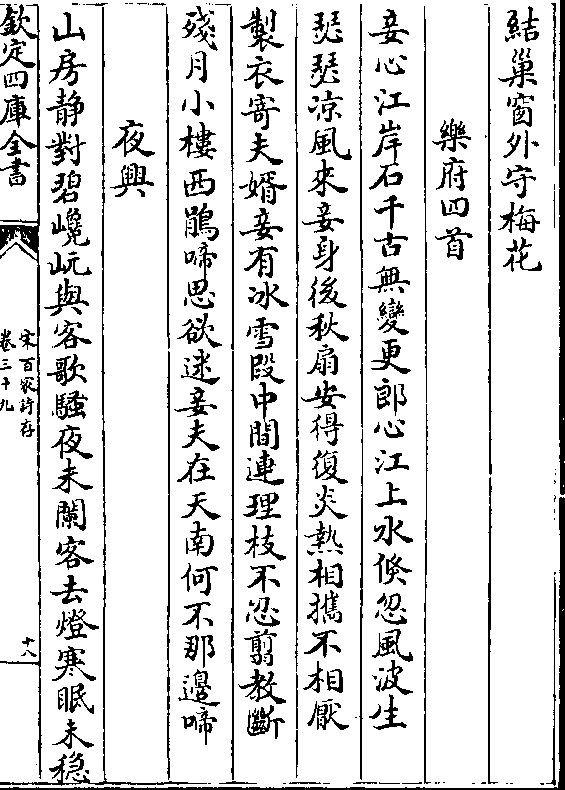 結巢窗外守梅花
樂府四首
妾心江岸石千古無變更郎心江上水倐忽風波生
瑟瑟凉風來妾身後秋扇安得復炎熱相攜不相厭
製衣寄夫婿妾有冰雪段中間連理枝不忍剪教斷
殘月小樓西鵑啼思欲迷妾夫在天南何不那邊啼
夜興
山房静對碧巑岏與客歌騷夜未闌客去燈寒眠未穏
欽定四庫全書
宋百家詩存
卷三十九
十八